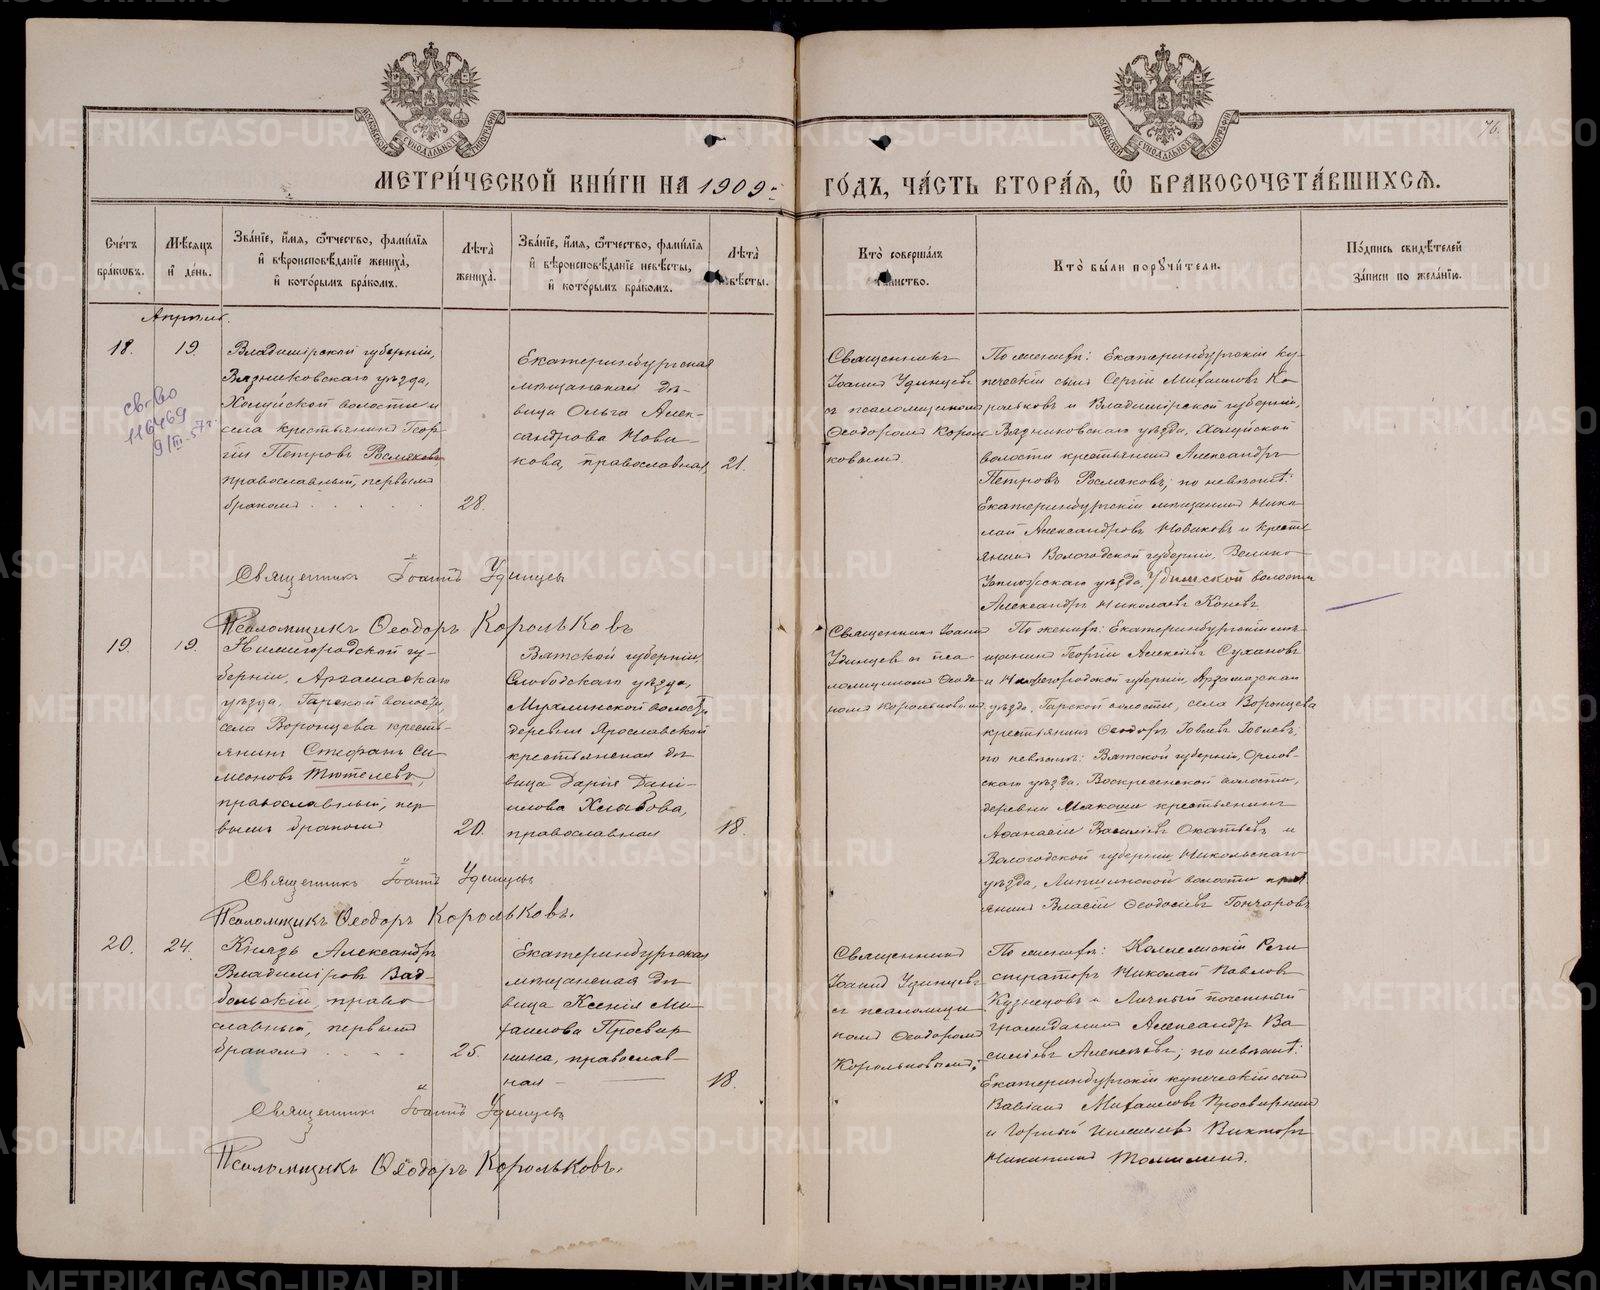 76.
МЕТРИ́ЧЕСКОЙ КНИ́ГИ НА 1909 ГО́ДЪ, ЧА́СТЬ ВТОРА́Ѧ, Ѽ БРАКОСОЧЕТА́ВШИХСѦ.
Сче́тъ бра́кѡвъ.
Мѣ́сѧцъ и҆ де́нь.
Зва́нїе, и҆́мѧ, ѻ҆́тчество, фами́лїѧ
и҆ вѣроисповѣ́данїе жениха̀,
и҆ кото́рымъ бра́комъ.
Лѣта̀ жениха̀.
Зва́нїе, и҆́мѧ, ѻ҆́тчество, фами́лїѧ
и҆ вѣроисповѣ́данїе невѣ́сты,
и҆ кото́рымъ бра́комъ.
Лѣта̀ невѣ́сты.
Кто̀ соверша́лъ таинство.
Кто̀ бы́ли порꙋчи́тели.
По́дпись свидѣ́телей
за́писи по жела́нїю.
Апрѣль.
18.
19.
св-во
116469
9/III-57г.
Владимірской губерніи,
Вязниковскаго уѣзда,
Холуйской волости и
села крестьянинъ Геор-
гій Петровъ Росляковъ
православный, первымъ
бракомъ
28.
Екатеринбургская
мѣщанская дѣ-
вица Ольга Алек-
сандрова Нови-
кова, православная,
21.
Священникъ
Іоаннъ Удинцевъ
съ псаломщикомъ
Ѳеодоромъ Король-
ковымъ.
По женихѣ: Екатеринбургскій ку-
печескій сынъ Сергій Михаиловъ Ко-
рольковъ и Владимірской губерніи,
Вязниковскаго уѣзда, Холуйской
волости крестьянинъ Александръ
Петровъ Росляковъ; по невѣстѣ:
Екатеринбургскій мѣщанинъ Нико-
лай Александровъ Новиковъ и кресть-
янинъ Вологодской губерніи, Велико-
Устюжскаго уѣзда, Удимской волости
Александръ Николаевъ Коневъ
Священникъ Іоаннъ Удинцевъ
Псаломщикъ Ѳеодоръ Корольковъ
19.
19.
Нижегородской гу-
берніи, Арзамасскаго
уѣзда, Гарской волости,
села Воронцева кресть-
янинъ Стефанъ Си-
меоновъ Тютелевъ,
православный, пер-
вымъ бракомъ
20.
Вятской губерніи,
Слободскаго уѣзда,
Мухлинской волости
деревни Ярославской
крестьянская дѣ-
вица Дарія Дані-
илова Хлыбова,
православная
18.
Священникъ Іоаннъ
Удинцевъ съ пса-
ломщикомъ Ѳеодо-
ромъ Корольковымъ.
По женихѣ: Екатеринбургскій мѣ-
щанинъ Георгій Алексіевъ Сухановъ
и Нижегородской губерніи, Арзамасскаго
уѣзда, Гарской волости, села Воронцева
крестьянинъ Ѳеодоръ Іовлевъ Іовлевъ;
по невѣстѣ: Вятской губерніи, Орлов-
скаго уѣзда, Воскресенской волости,
деревни крестьянинъ
Аѳанасій Василіевъ Окатьевъ и
Вологодской губерніи Никольскаго
уѣзда, волости крест
янинъ Власій Ѳеодосіевъ Гончаровъ
Священникъ Іоаннъ Удинцевъ
Псаломщикъ Ѳеодоръ Корольковъ.
20.
24.
Князь Александръ
Владиміровъ Вад-
больскій, право-
славный, первымъ
бракомъ
25.
Екатеринбургская
мѣщанская дѣ-
вица Ксенія Ми-
хаилова Просвир-
нина, православ-
ная
18.
Священникъ
Іоаннъ Удинцевъ
съ псаломщи-
комъ Ѳеодоромъ
Корольковымъ.
По женихѣ: Коллежскій Реги-
страторъ Николай Павловъ
Кузнецовъ и Личный почетный
гражданинъ Александръ Ва-
силіевъ Алексѣевъ; по невѣстѣ:
Екатеринбургскій купеческій сынъ
Михаиловъ Просвирнинъ
и Горный Инженеръ Викторъ
Никитинъ
Священникъ Іоаннъ Удинцевъ
Псаломщикъ Ѳеодоръ Корольковъ.
METRIKI.GASO-URAL.RU